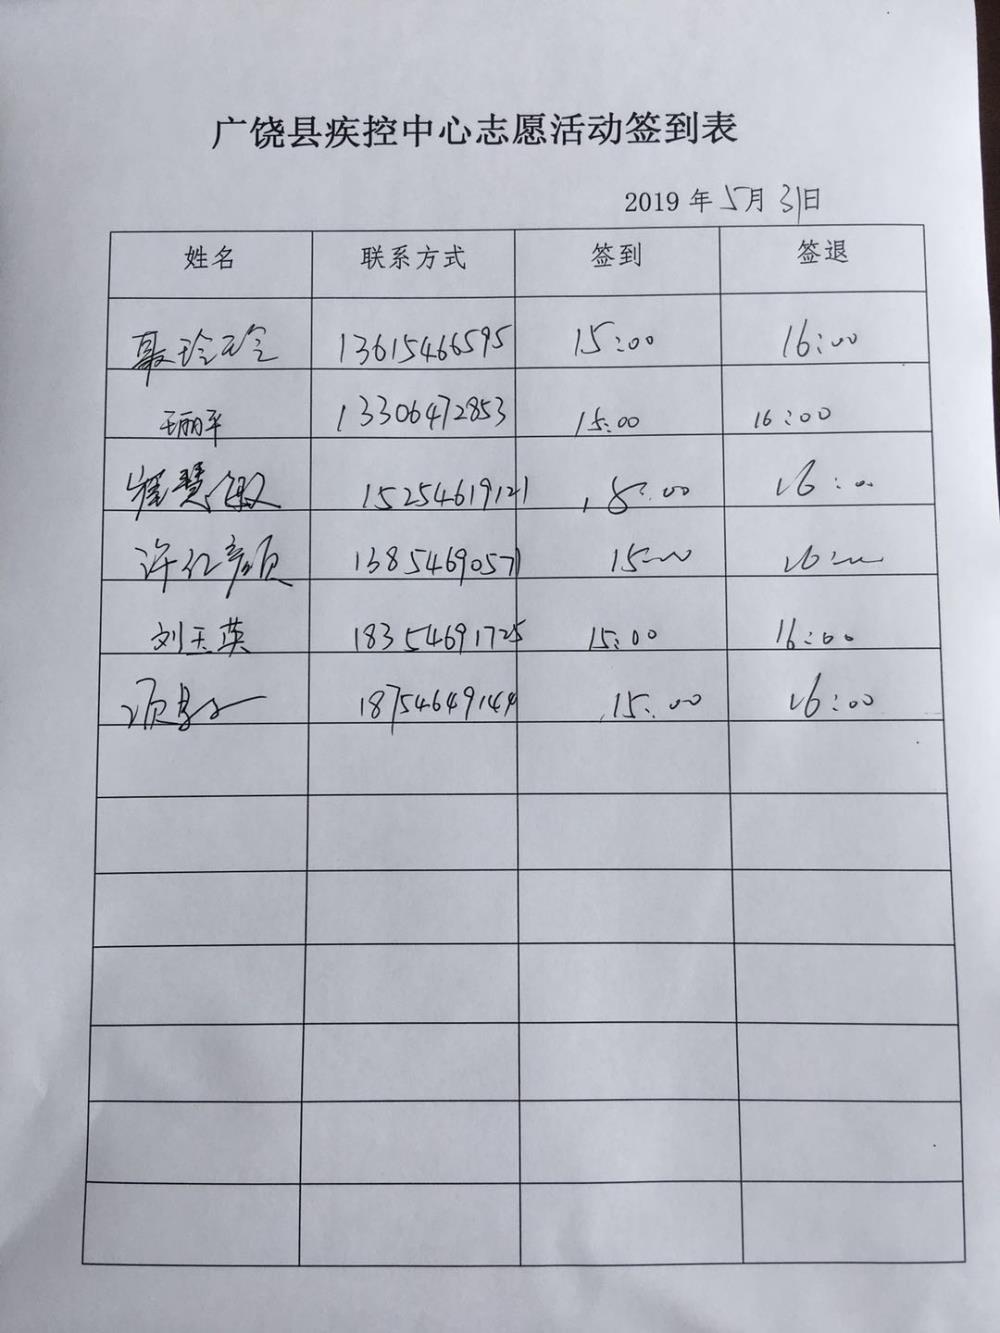 广饶县疾控中心志愿活动签到表
2019 年 5月 31日
姓名 联系方式 签到 签退
聂玲玲 13615466595 15:00 16:00
王丽平 13306472853 15:00 16:00
崔慧敏 15254619121 15:00 16:00
许红彦 13854690571 15:00 16:00
刘玉英 18354691725 15:00 16:00
18754649144 15:00 16:00